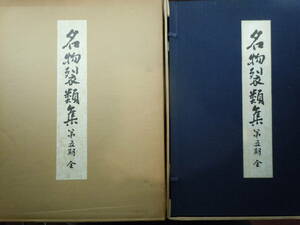 名物裂類集 第五期 全
名物裂類集 第五期 全